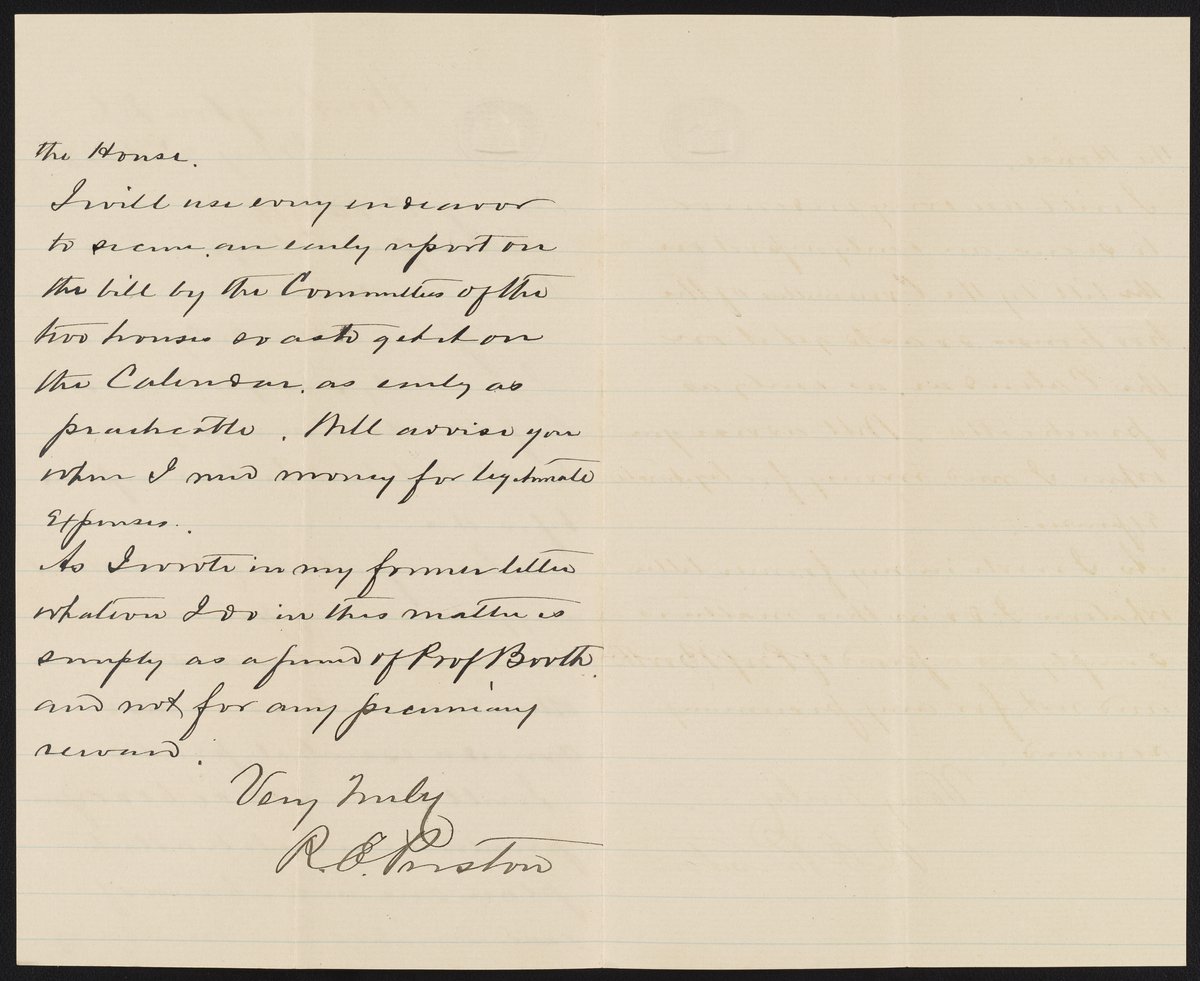 the House.
I will use every endeavor
to secure an early report on
the bill by the Committees of the
two houses so as to get it on
the Calendar as early as
practicable. Will advise you
when I need money for legitimate
expenses.
As I wrote in my former letter
whatever I do in this matter is
simply as a friend of Prof Booth
and not for any pecuniary
reward.
Very Truly
R. E. Preston